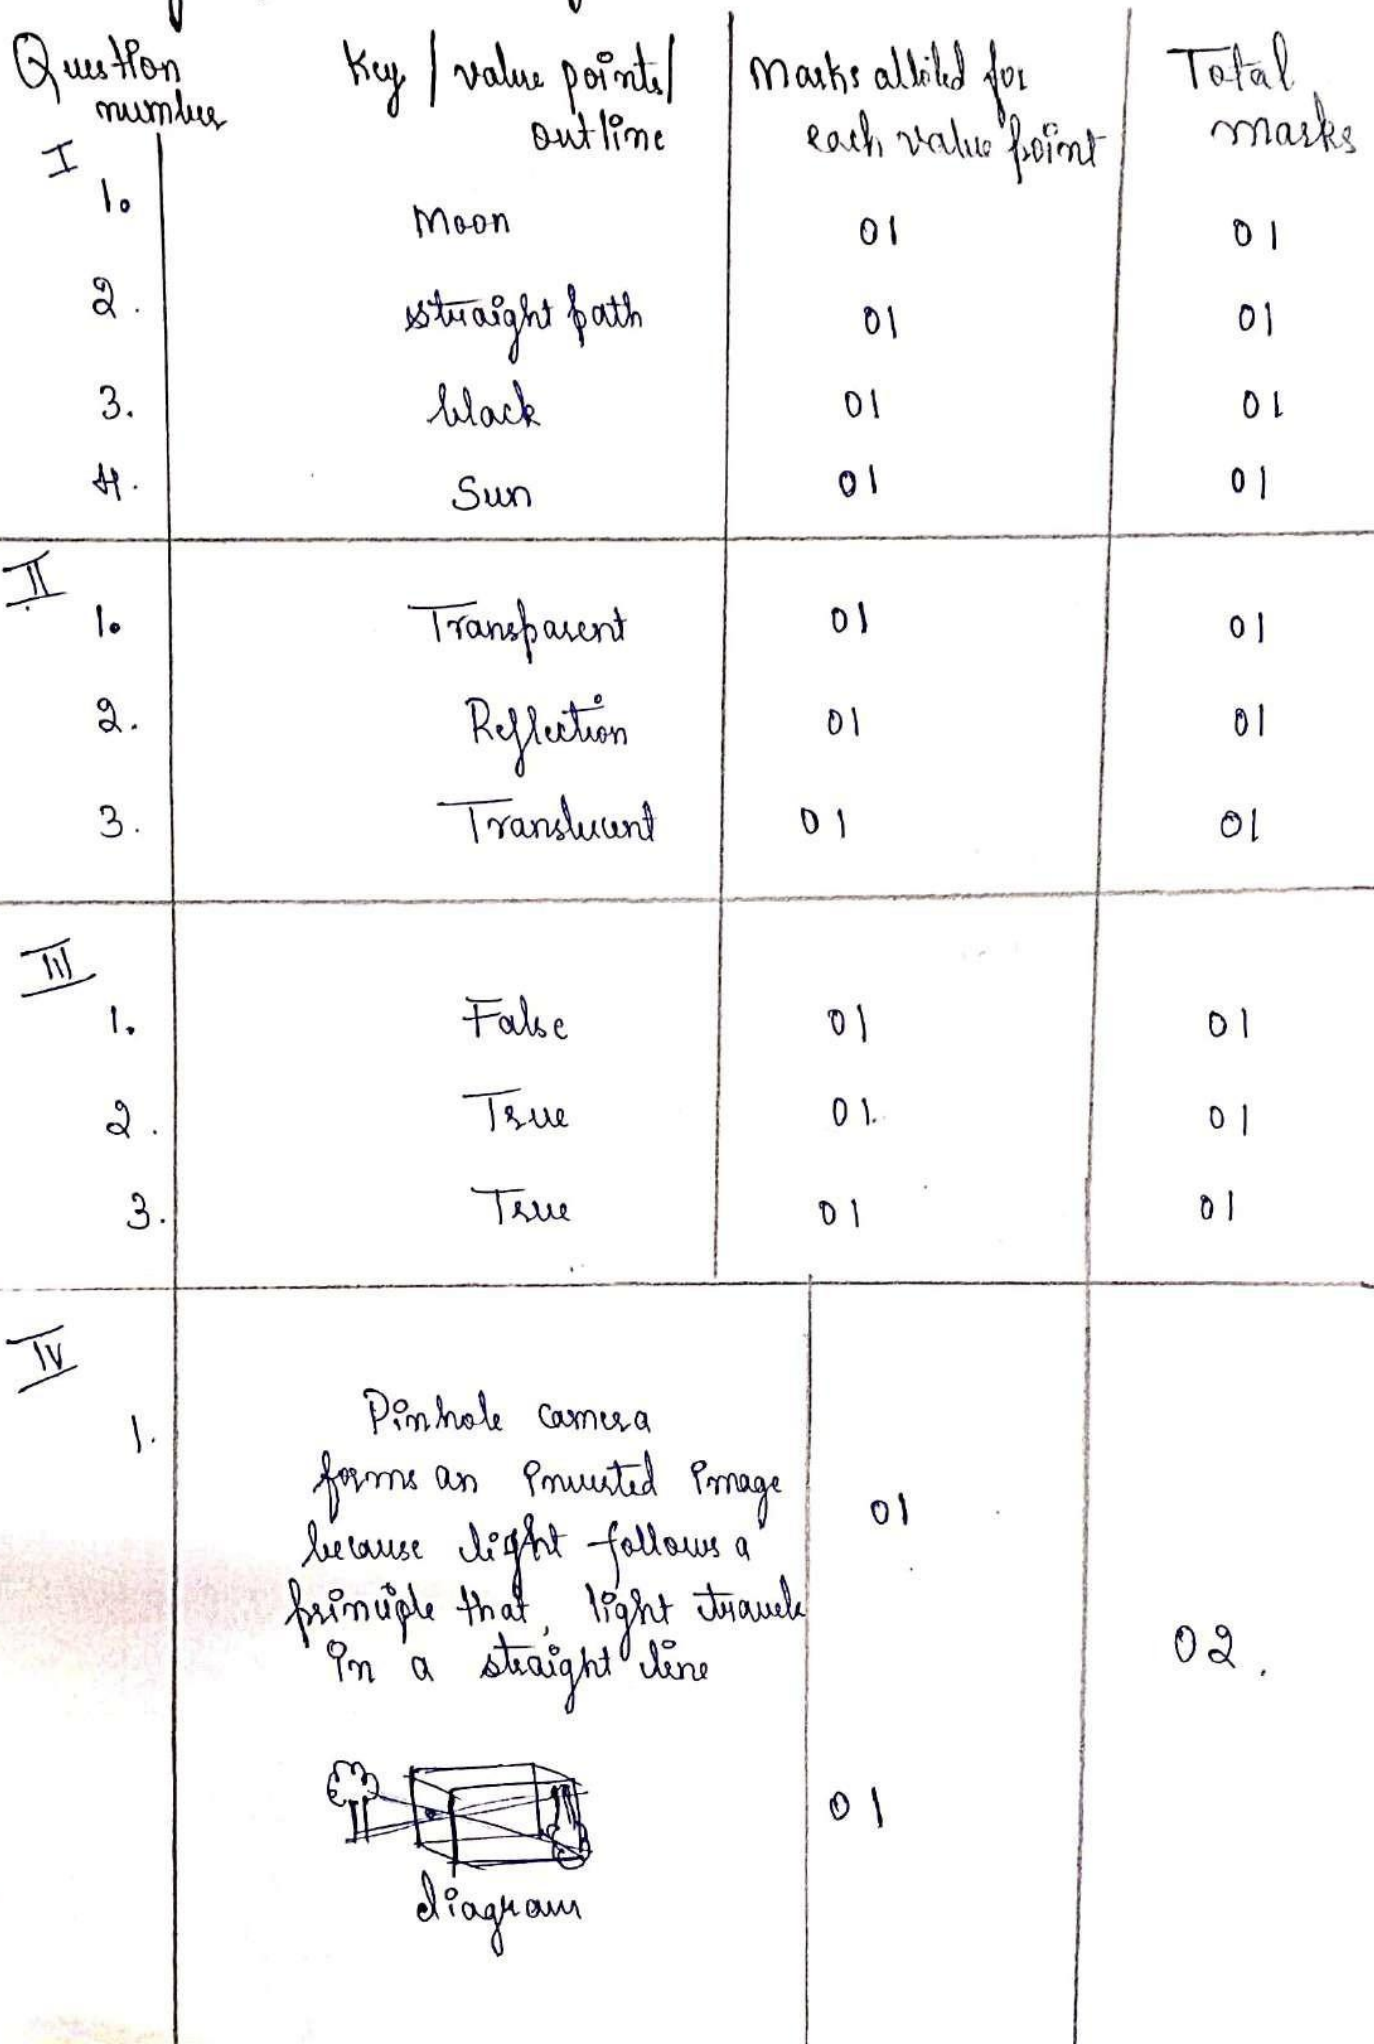 Question number | Key / value points/ outline | Marks alloted for each value point | Total marks
I
1. Moon 01 01
2. straight path 01 01
3. black 01 01
4. Sun 01 01
II
1. Transparent 01 01
2. Reflection 01 01
3. Translucent 01 01
III
1. False 01 01
2. True 01. 01
3. True 01 01
IV
1. Pinhole camera
forms an inverted image 01
because light follows a
principle that, light travels
in a straight line 02.
01
diagram